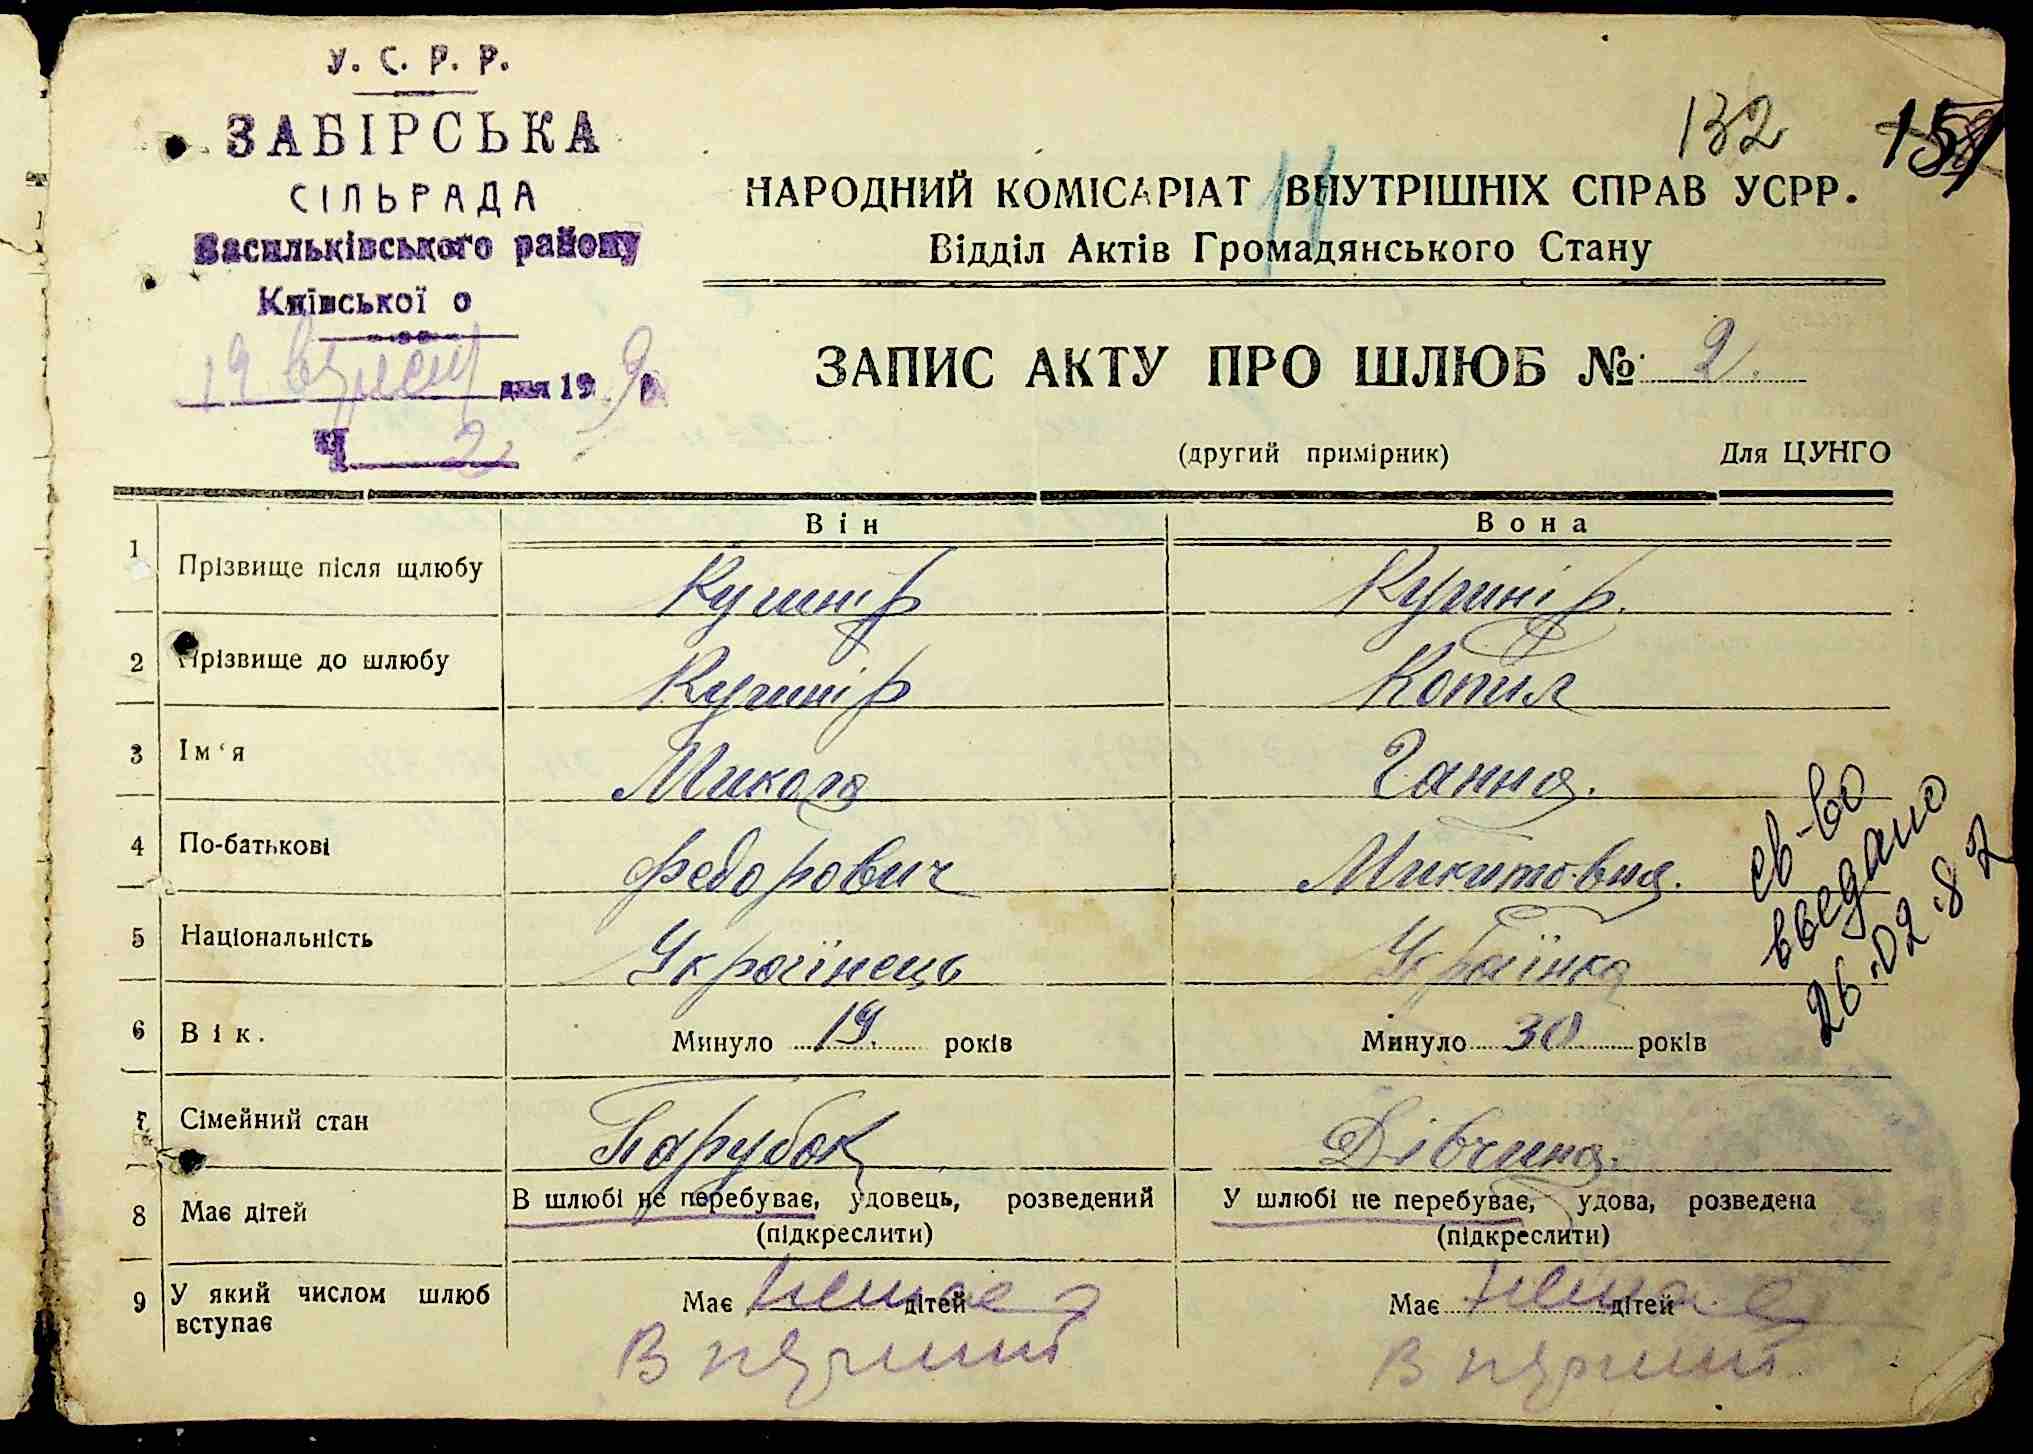 У. С. Р. Р.
ЗАБІРСЬКА
СІЛЬРАДА
Васильківського району
Київської о
19 вересня дня 19 9 р
Ч 2
132 151
11
НАРОДНИЙ КОМІСАРІАТ ВНУТРІШНІХ СПРАВ УСРР.
Відділ Актів Громадянського Стану
ЗАПИС АКТУ ПРО ШЛЮБ №. 2.
(другий примірник) Для ЦУНГО
Він Вона
1 Прізвище після щлюбу Кушнір Кушнір.
2 Прізвище до шлюбу Кушнір Копил
3 Ім'я Микола Ганна.
4 По-батькові Федорович Микитовна.
5 Національність Українець Українка
6 Вік. Минуло 19. років Минуло 30 років
7 Сімейний стан Парубок Дівчина.
8 Має дітей В шлюбі не перебуває, удовець, розведений У шлюбі не перебуває, удова, розведена
(підкреслити) (підкреслити)
9 У який числом шлюб вступає Має немає дітей Має немає дітей
В перший В перший
св-во
введано
26.02.82